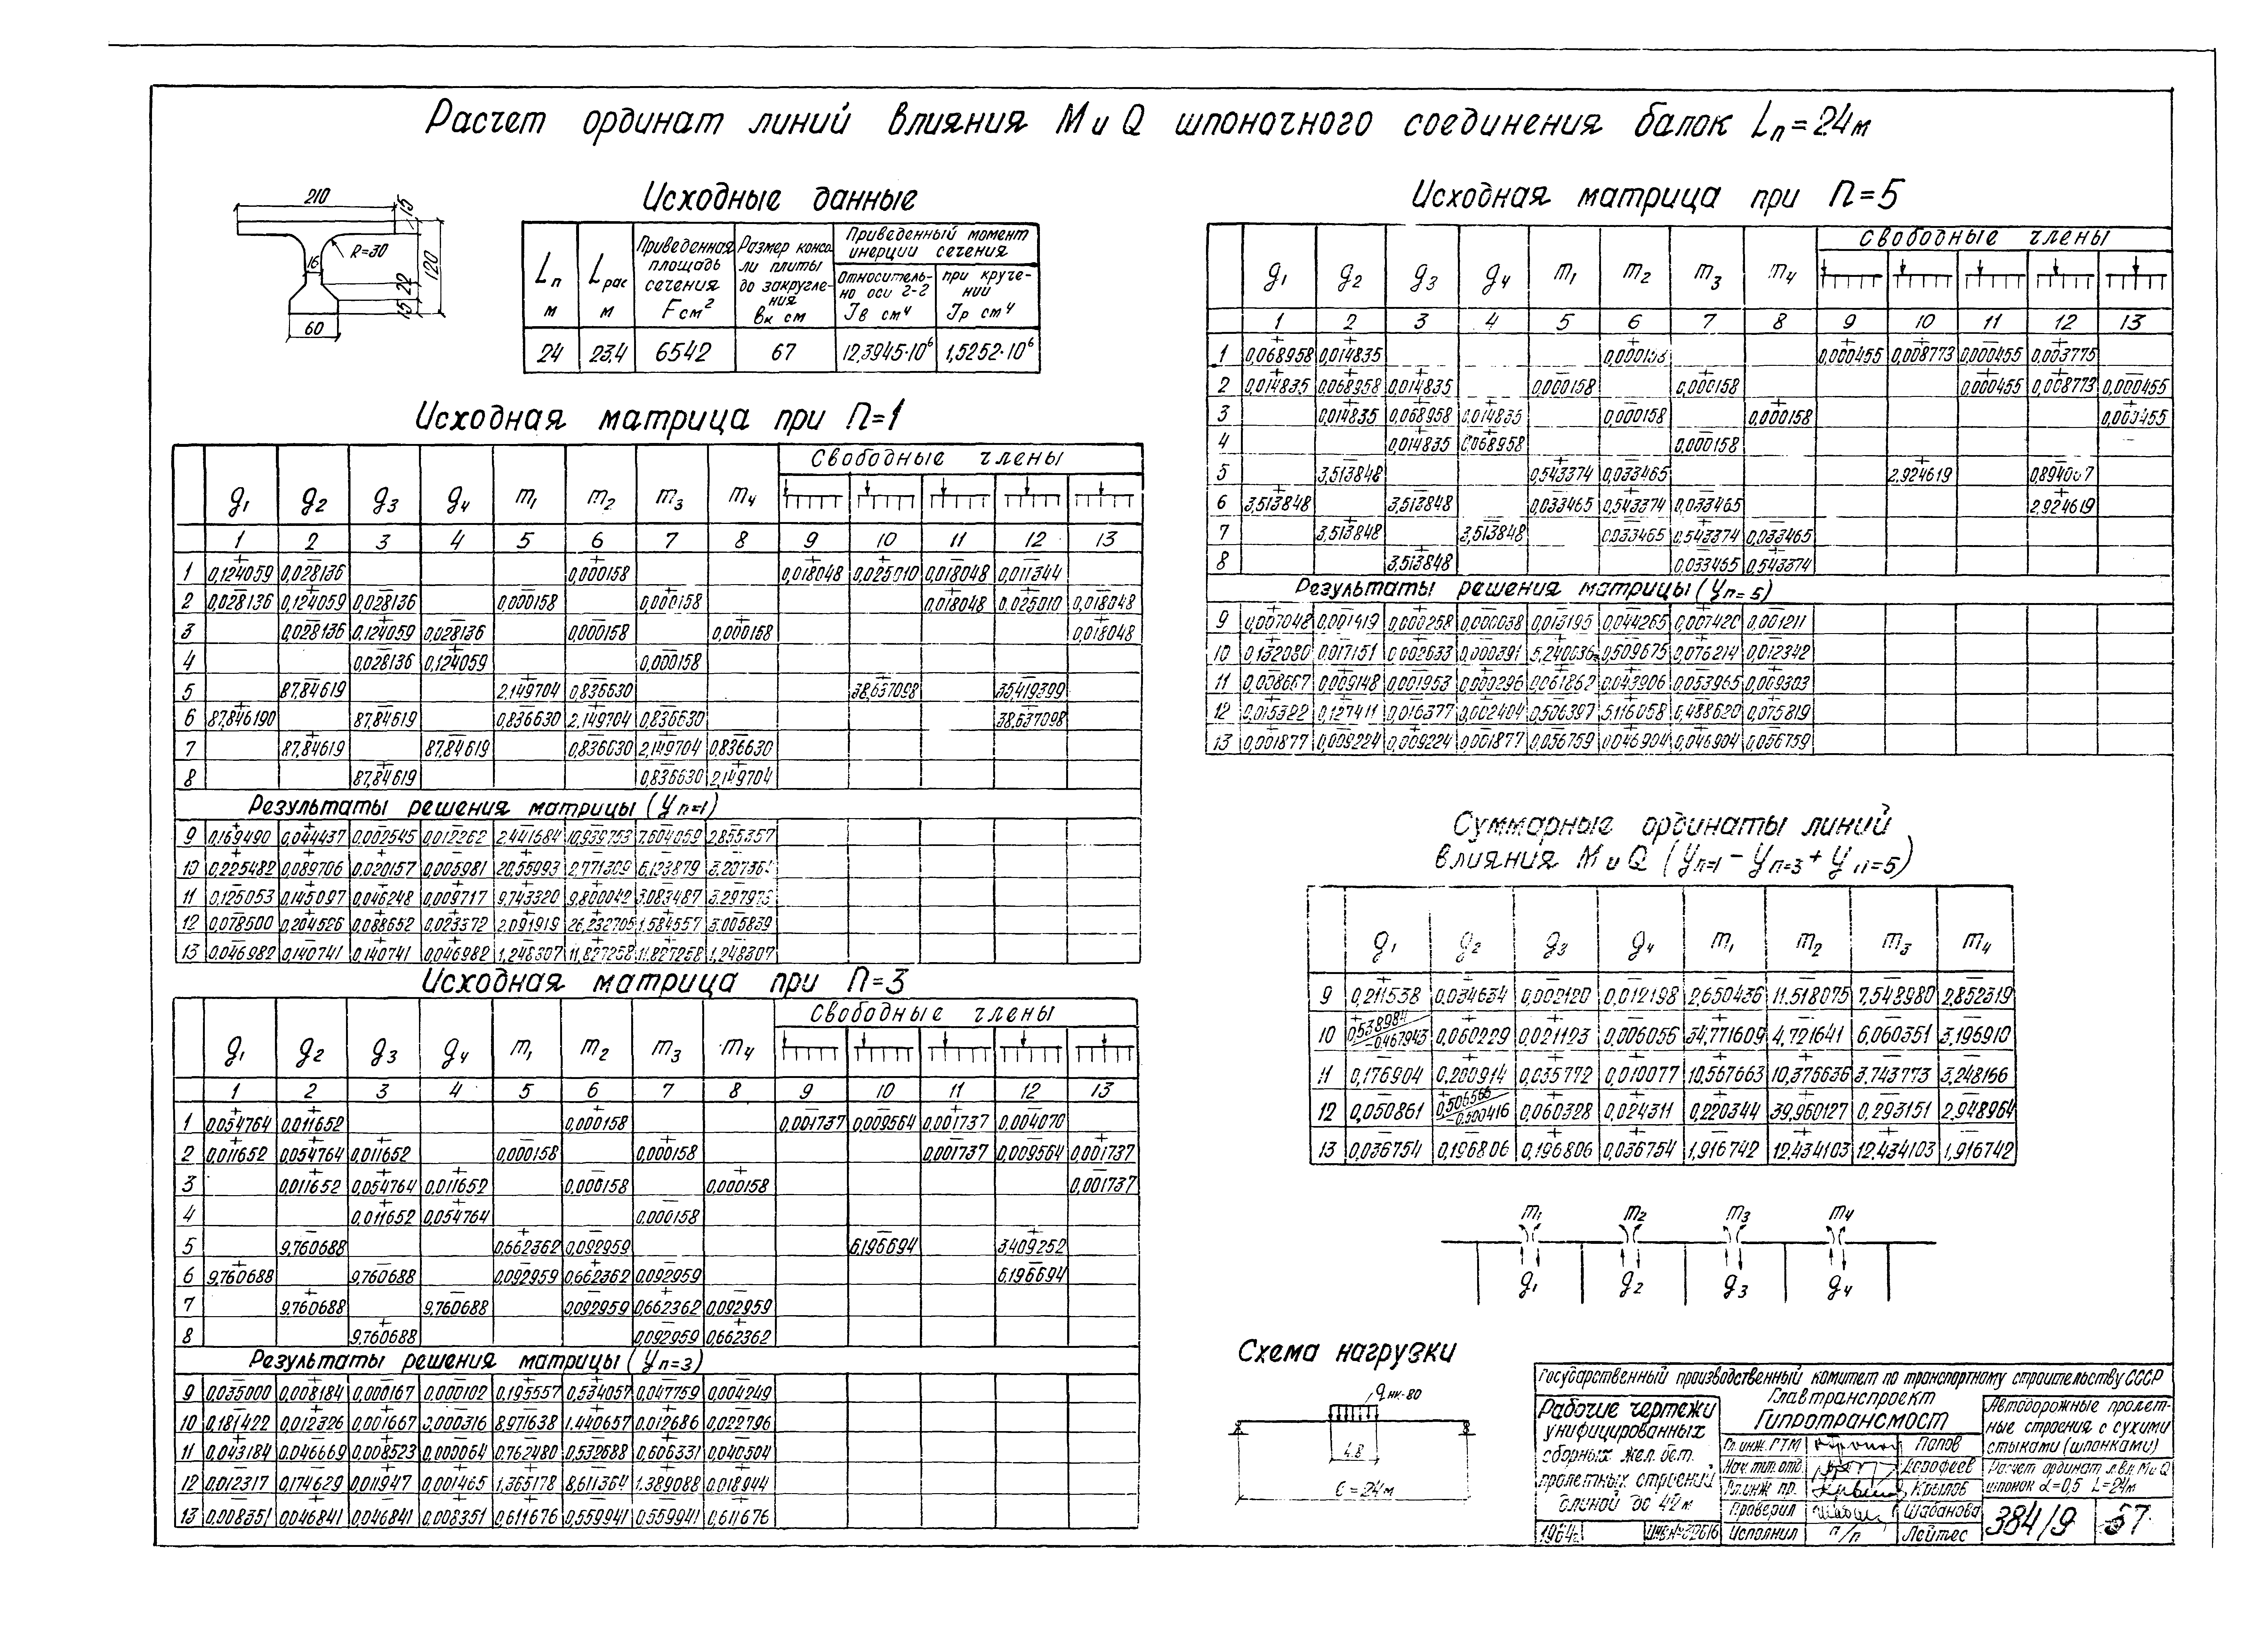 Расчет ординат линий влияния М и Q шпоночного соединения балок Lп=24м
210
15
R=30
16
120
22
15
60
Исходные данные
Lп м
Lрас м
Приведенная площадь сечения F см²
Размер консоли плиты до закругления вк см
Приведенный момент инерции сечения
Относительно оси 2-2 Jв см⁴
при кручении Jр см⁴
24 23,4 6542 67 12,3945·10⁶ 1,5252·10⁶
Исходная матрица при П=1
Свободные члены
g1 g2 g3 g4 m1 m2 m3 m4
1 2 3 4 5 6 7 8 9 10 11 12 13
1 0,124059 0,028136 0,000158 0,018048 0,025010 0,018048 0,011344
2 0,028136 0,124059 0,028136 0,000158 0,000158 0,018048 0,025010 0,018048
3 0,028136 0,124059 0,028136 0,000158 0,000158 0,018048
4 0,028136 0,124059 0,000158
5 87,84619 2,149704 0,836630 38,637098 35,419399
6 87,846190 87,84619 0,836630 2,149704 0,836630 38,637098
7 87,84619 87,84619 0,836630 2,149704 0,836630
8 87,84619 0,836630 2,149704
Результаты решения матрицы (Уп=1)
9 0,169490 0,044437 0,002545 0,012262 2,441684 10,939753 7,604059 2,855357
10 0,225482 0,089706 0,020157 0,005981 20,55993 2,771309 6,123879
11 0,125053 0,145097 0,046248 0,009717 9,743320 9,800042 3,083487
12 0,078500 0,204526 0,088652 0,023372 2,091919 26,232705 1,584557 3,005839
13 0,046982 0,140741 0,140741 0,046982 1,248307 11,827258 11,827258 1,248307
Исходная матрица при П=3
Свободные члены
g1 g2 g3 g4 m1 m2 m3 m4
1 2 3 4 5 6 7 8 9 10 11 12 13
1 0,054764 0,011652 0,000158 0,001737 0,009564 0,001737 0,004070
2 0,011652 0,054764 0,011652 0,000158 0,000158 0,001737 0,009564 0,001737
3 0,011652 0,054764 0,011652 0,000158 0,000158 0,001737
4 0,011652 0,054764 0,000158
5 9,760688 0,662362 0,092959 6,196694 3,409252
6 9,760688 9,760688 0,092959 0,662362 0,092959 6,196694
7 9,760688 9,760688 0,092959 0,662362 0,092959
8 9,760688 0,092959 0,662362
Результаты решения матрицы (Уп=3)
9 0,035000 0,008184 0,000167 0,000102 0,195557 0,534057 0,047759 0,004249
10 0,181422 0,012326 0,001667 0,000316 8,971638 1,440657 0,012686 0,022796
11 0,043184 0,046669 0,008523 0,000064 0,762480 0,532688 0,606331 0,040504
12 0,012317 0,174629 0,011947 0,001465 1,365178 8,611364 1,389088 0,018944
13 0,008351 0,046841 0,046841 0,008351 0,611676 0,559941 0,559941 0,611676
Исходная матрица при П=5
Свободные члены
g1 g2 g3 g4 m1 m2 m3 m4
1 2 3 4 5 6 7 8 9 10 11 12 13
1 0,068958 0,014835 0,000455 0,008773 0,000455 0,003775
2 0,014835 0,068958 0,014835 0,000158 0,000158 0,000455 0,008773 0,000455
3 0,014835 0,068958 0,014835 0,000158 0,000158
4 0,014835 0,068958 0,000158
5 3,513848 0,543374 0,033465 2,924619
6 3,513848 3,513848 0,033465 0,543374 0,033465 2,924619
7 3,513848 3,513848 0,033465 0,543374 0,033465
8 3,513848 0,033465 0,543374
Результаты решения матрицы (Уп=5)
9 0,007048 0,001419 0,000258 0,000038 0,013195 0,044265 0,007420 0,001211
10 0,132080 0,017151 0,002633 0,000391 0,509675 0,076214 0,012342
11 0,008667 0,009148 0,001953 0,000296 0,061862 0,043906 0,053965 0,009303
12 0,015322 0,127411 0,016377 0,002404 0,506397 5,116058 0,488620 0,075819
13 0,001877 0,009224 0,009224 0,001877 0,056759 0,046904 0,046904 0,056759
Суммарные ординаты линий
влияния М и Q (Уп=1 − Уп=3 + Уп=5)
g1 g2 g3 g4 m1 m2 m3 m4
9 0,211538 0,034634 0,002120 0,012198 2,650436 11,518075 7,548980 2,852319
10 0,538984/-0,467943 0,060229 0,021123 0,006056 34,771609 4,721641 6,060351 3,195910
11 0,176904 0,200914 0,035772 0,010077 10,567663 10,376636 3,743773 3,248166
12 0,050861 0,506566/-0,500416 0,060328 0,024311 0,220344 39,960127 0,293151 2,948964
13 0,036754 0,196806 0,196806 0,036754 1,916742 12,434103 12,434103 1,916742
m1 m2 m3 m4
g1 g2 g3 g4
Схема нагрузки
qнк-80
4.8
ℓ=24м
Государственный производственный комитет по транспортному строительству СССР
Главтранспроект
Гипротрансмост
Рабочие чертежи унифицированных сборных жел. бет. пролетных строений длиной до 42 м
Автодорожные пролетные строения с сухими стыками (шпонками)
Гл. инж. ГТМ Попов
Нач. тип. отд. Дорофеев
Гл. инж. пр. Крылов
Проверил Шабанова
Исполнил п/п Лейтес
Расчет ординат л.вл. М и Q шпонок α=0,5 L=24м
1964г. Инв.№
384/9 57